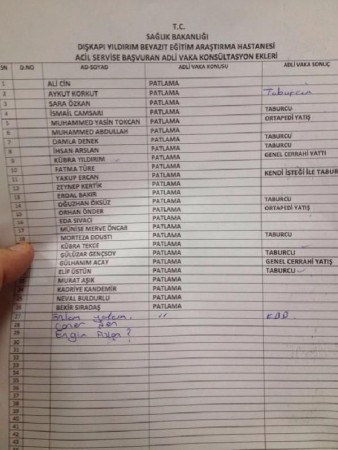 T.C.
SAĞLIK BAKANLIĞI
DIŞKAPI YILDIRIM BEYAZIT EĞİTİM ARAŞTIRMA HASTANESİ
ACİL SERVİSE BAŞVURAN ADLİ VAKA KONSÜLTASYON EKLERİ
D.NO AD-SOYAD ADLİ VAKA KONUSU ADLİ VAKA SONUÇ
1 ALİ CİN PATLAMA
2 AYKUT KORKUT PATLAMA Taburcu
3 SARA ÖZKAN PATLAMA
4 İSMAİL CAMSARI PATLAMA TABURCU
5 MUHAMMED YASİN TOKCAN PATLAMA ORTAPEDİ YATIŞ
6 MUHAMMED ABDULLAH PATLAMA
7 DAMLA DENEK PATLAMA TABURCU
8 İHSAN ARSLAN PATLAMA GENEL CERRAHİ YATTI
9 KÜBRA YILDIRIM PATLAMA
10 FATMA TÜRE PATLAMA KENDİ İSTEĞİ İLE TABUR
11 YAKUP ERCAN PATLAMA
12 ZEYNEP KERTİK PATLAMA
ERDAL BAKIR PATLAMA
OĞUZHAN ÖKSÜZ PATLAMA TABURCU
ORHAN ÖNDER PATLAMA ORTAPEDİ YATIŞ
EDA SIVACI PATLAMA
MÜNİSE MERVE ÖNCAR PATLAMA
MORTEZA DOUSTI PATLAMA TABURCU
KÜBRA TEKÇE PATLAMA
GÜLÜZAR GENÇSOY PATLAMA TABURCU
GÜLHANIM ACAY PATLAMA GENEL CERRAHİ YATIŞ
ELİF ÜSTÜN PATLAMA TABURCU
MURAT AŞIK PATLAMA
KADRİYE KANDEMİR PATLAMA
NEVAL BULDURLU PATLAMA
26 BEKİR SIRADAŞ PATLAMA
27 "
28
29 Engin ?
30